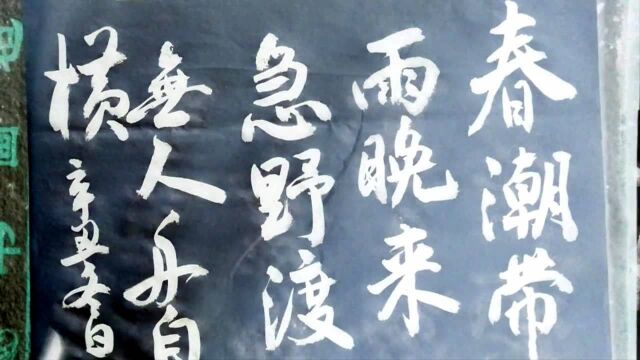 春潮带
雨晚来
急野渡
無人舟自
横
辛丑冬日